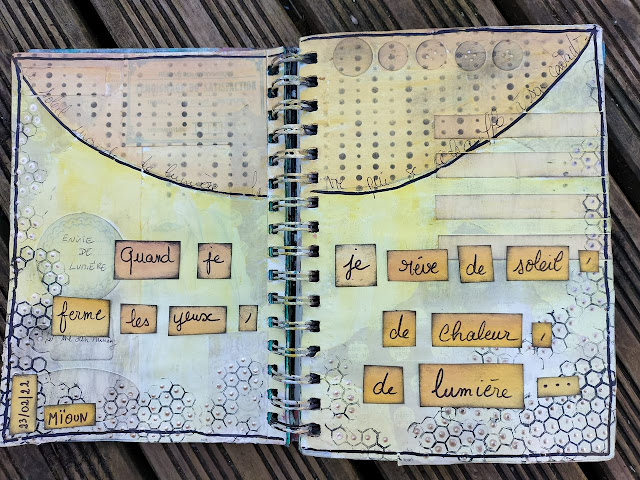 ENVIE
DE
LUMIÈRE
Quand je
ferme les yeux,
23/02/22
MÏOUN
je rêve de soleil,
de chaleur,
de lumière ...